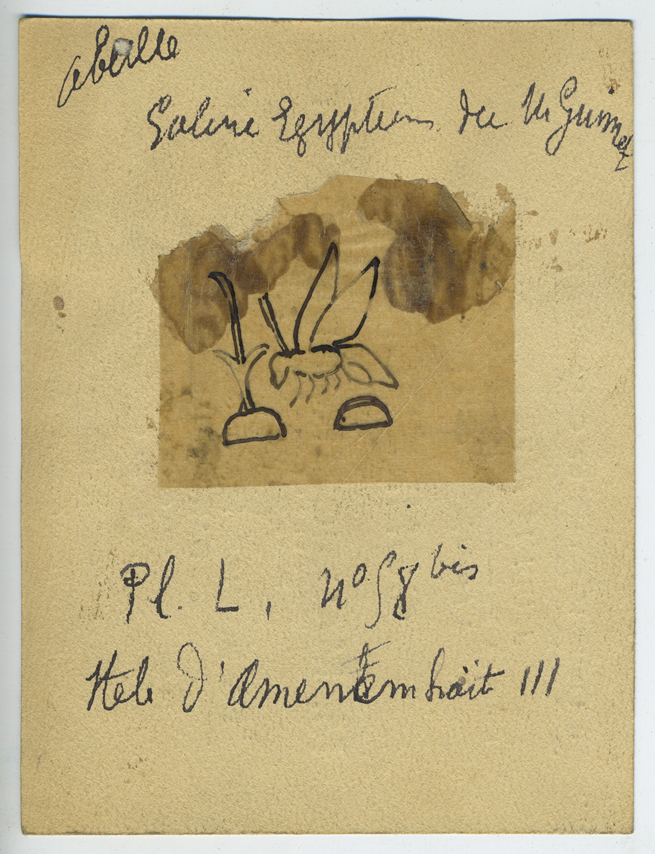 abeille
Galerie Egyptienne du M Guimet
Pl. L, nº 58 bis
Stele d'Amenemhait III